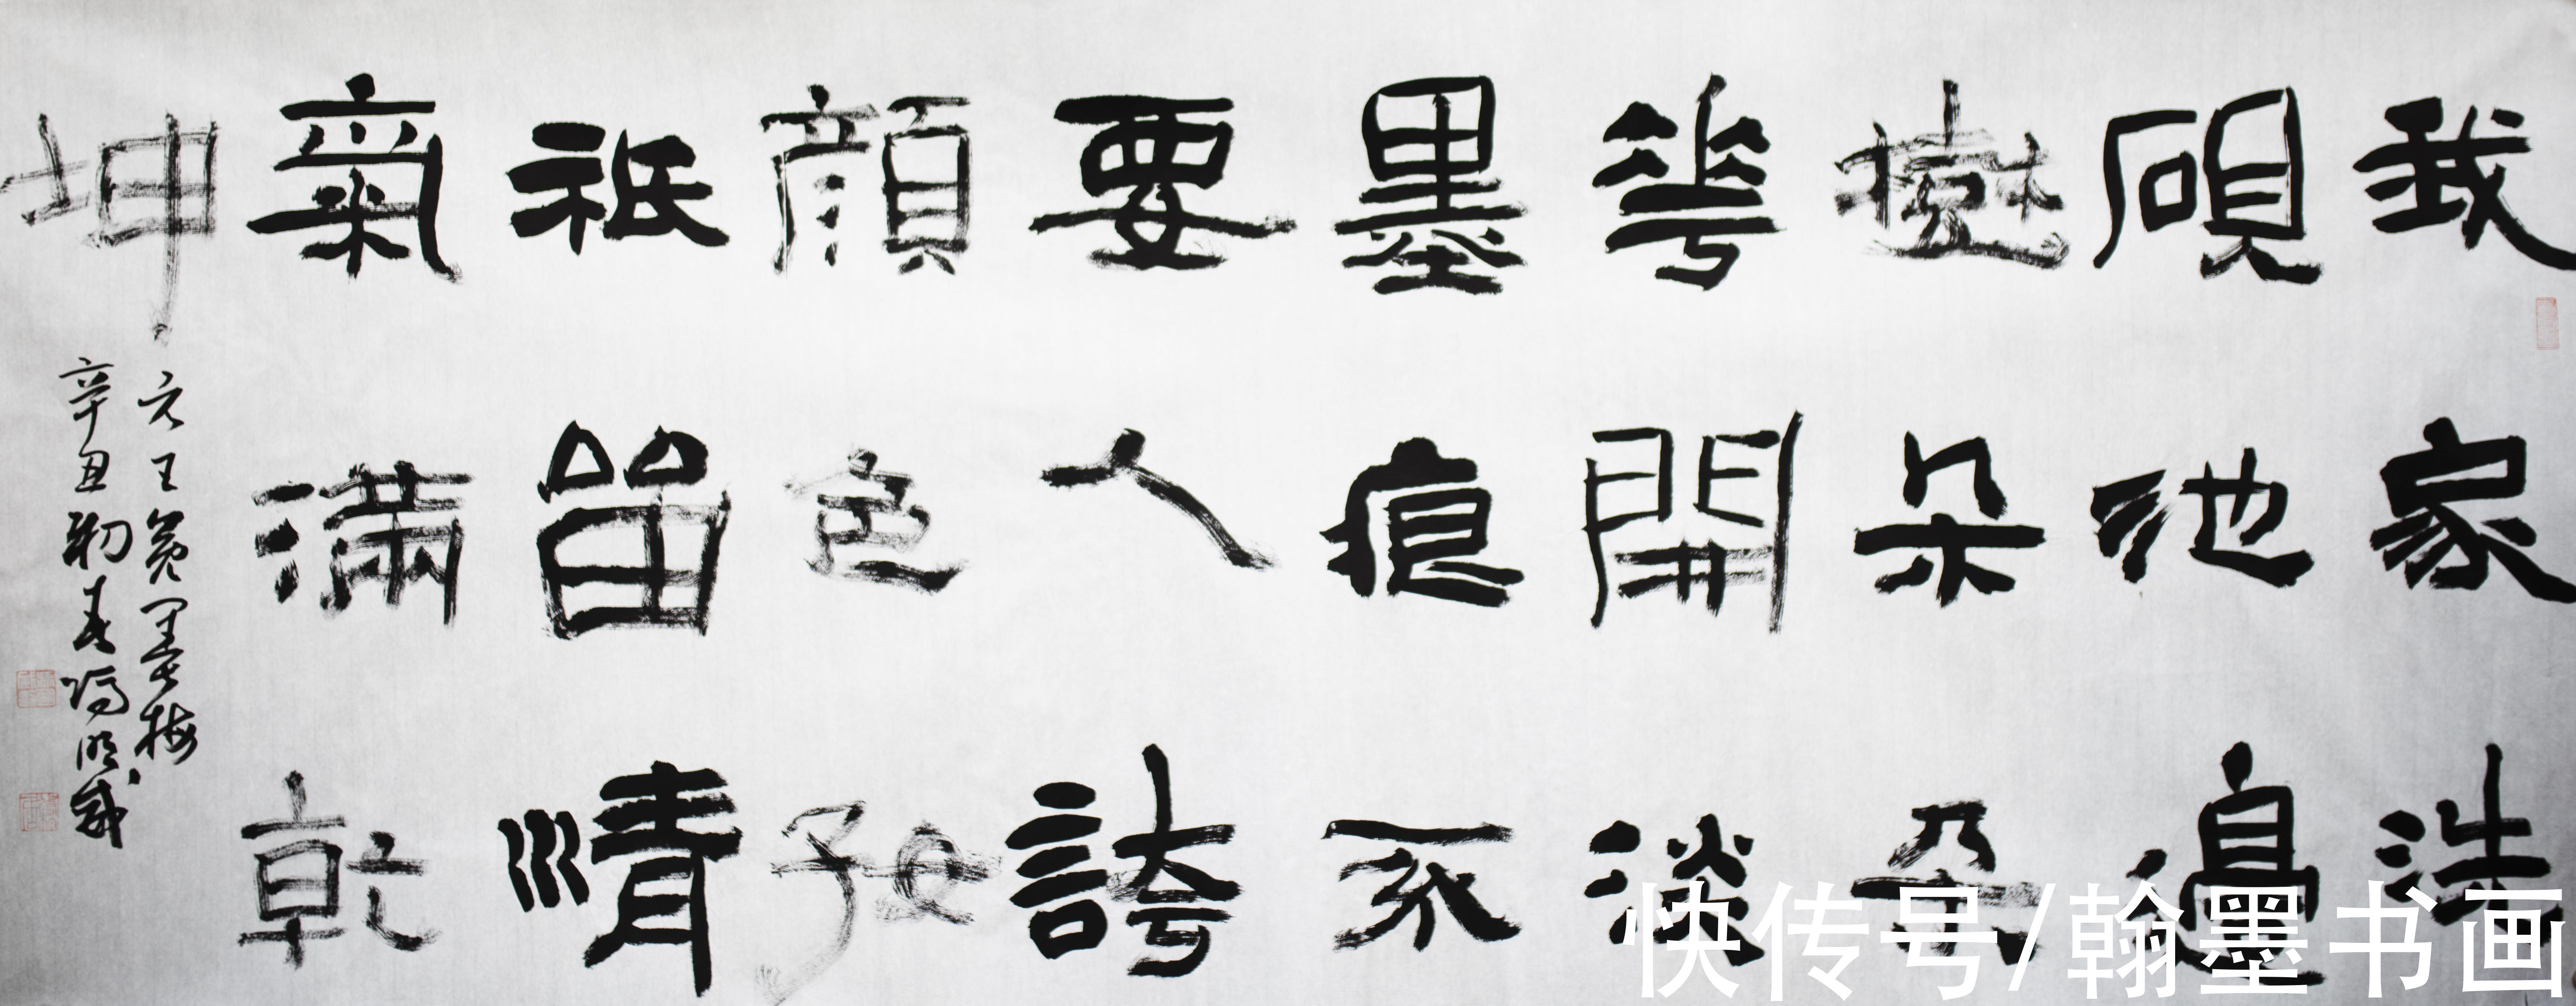 我家洗
硯池邊
樹朵朵
華開淡
墨痕不
要人誇
顏色好
祇留清
氣滿乾
坤
元王冕墨梅
辛丑初春馮明
快传号/翰墨书画